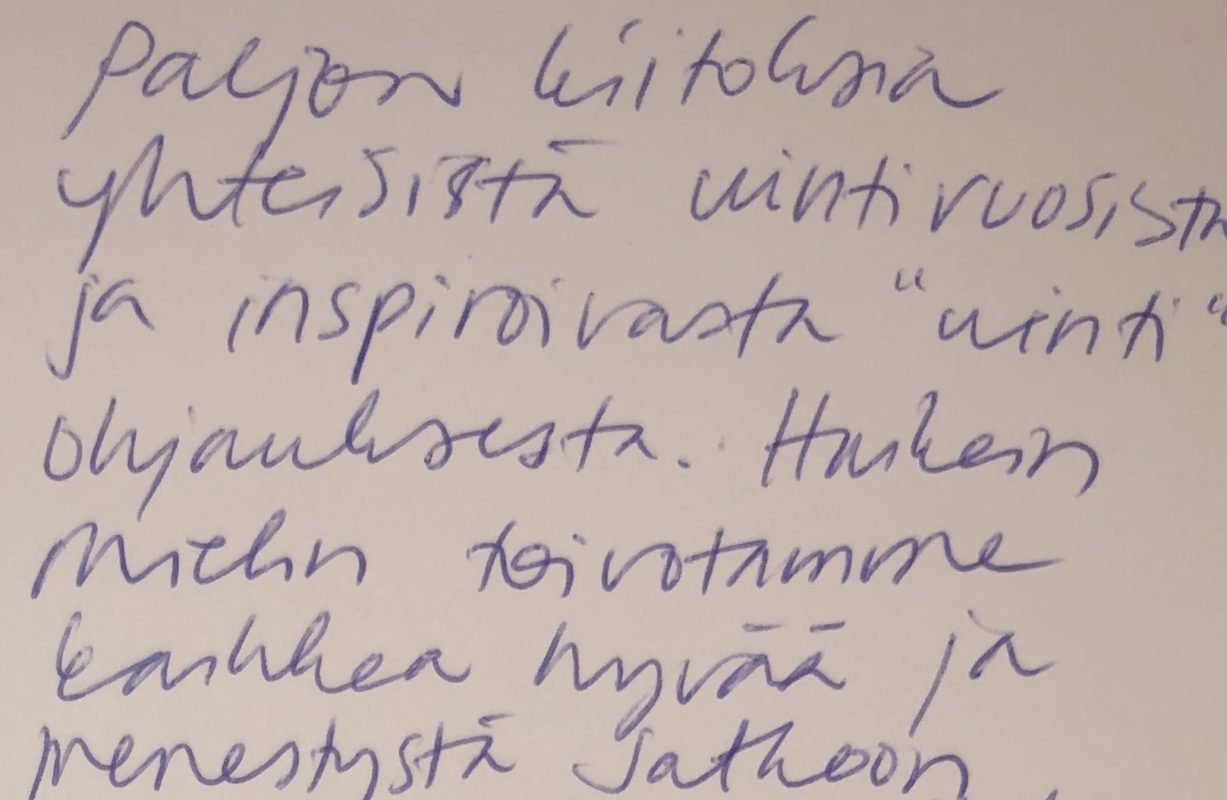 Paljon kiitoksia
yhteisistä uintivuosista
ja inspiroivasta "uinti"
ohjauksesta. Haikein
mielin toivotamme
kaikkea hyvää ja
menestystä jatkoon,